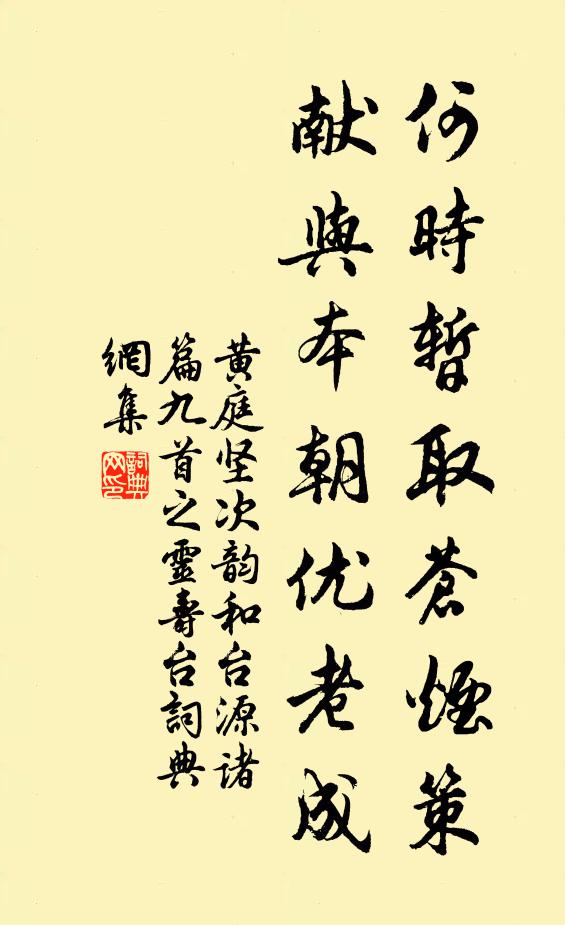 何時暫取蒼煙策
献與本朝优老成
黄庭坚次韵和台源诸
篇九首之靈壽台詞典
網集
詞典
网印